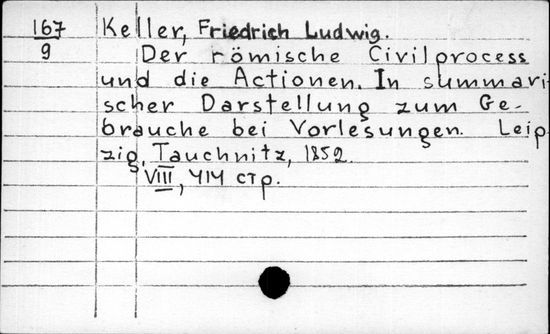 167 Keller, Friedrich Ludwig.
9 Der römische Civilprocess
und die Actionen. In summari-
scher Darstellung zum Ge-
brauche bei Vorlesungen. Leip-
zig, Tauchnitz, 1852.
VIII, 414 стр.